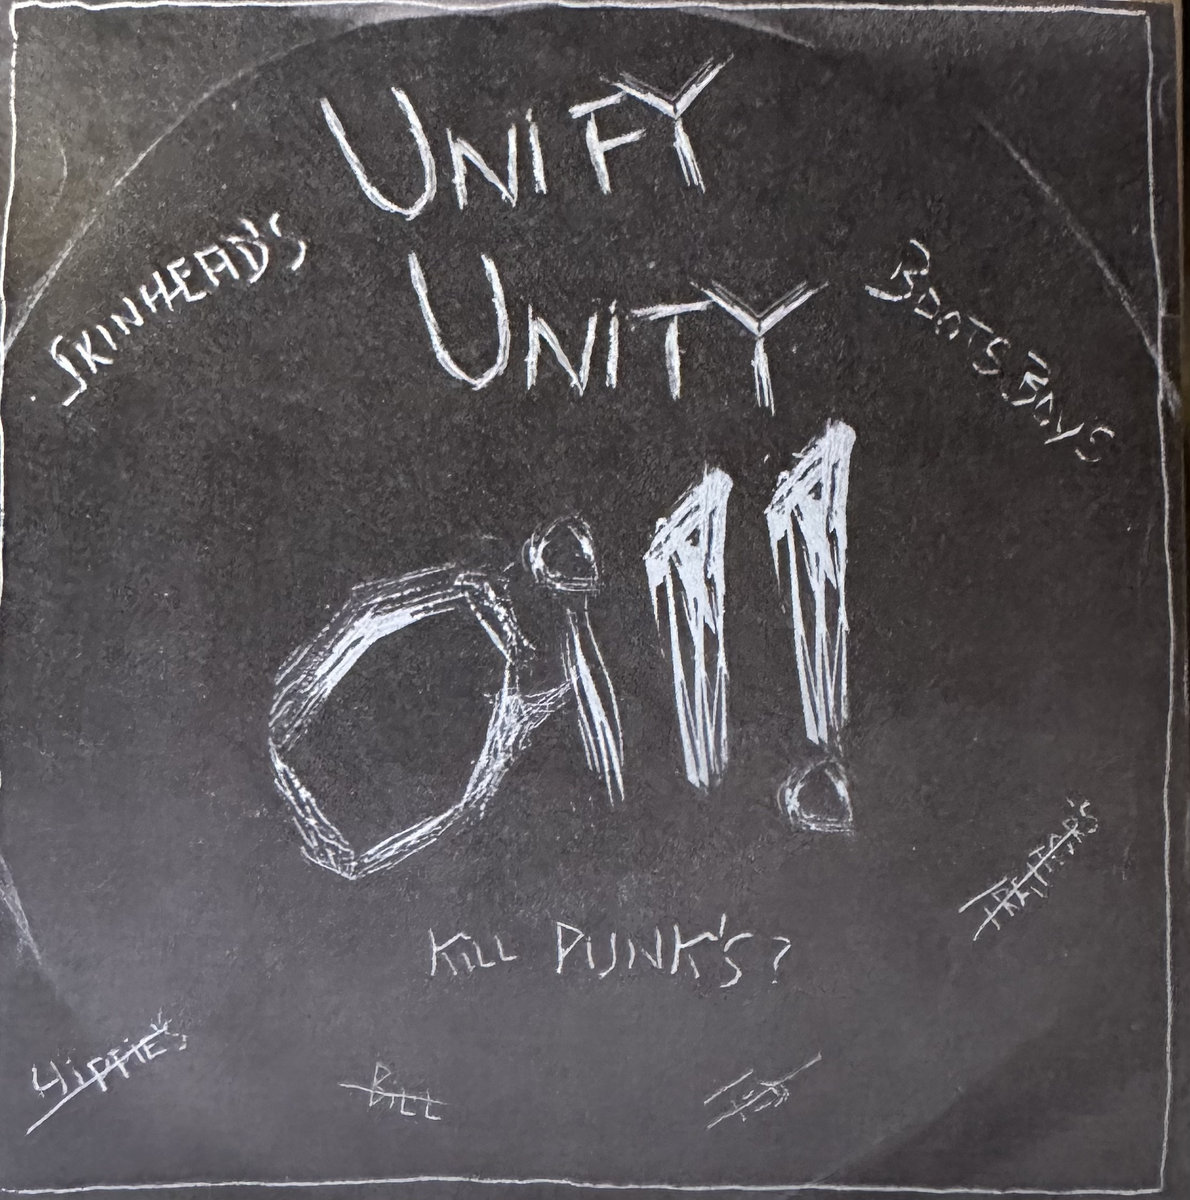 UNIFY
UNITY
SKINHEAD'S
BOOTS BOYS
oi!!
KILL PUNK'S?
TREITOR'S
HIPPIE'S
BILL
TED